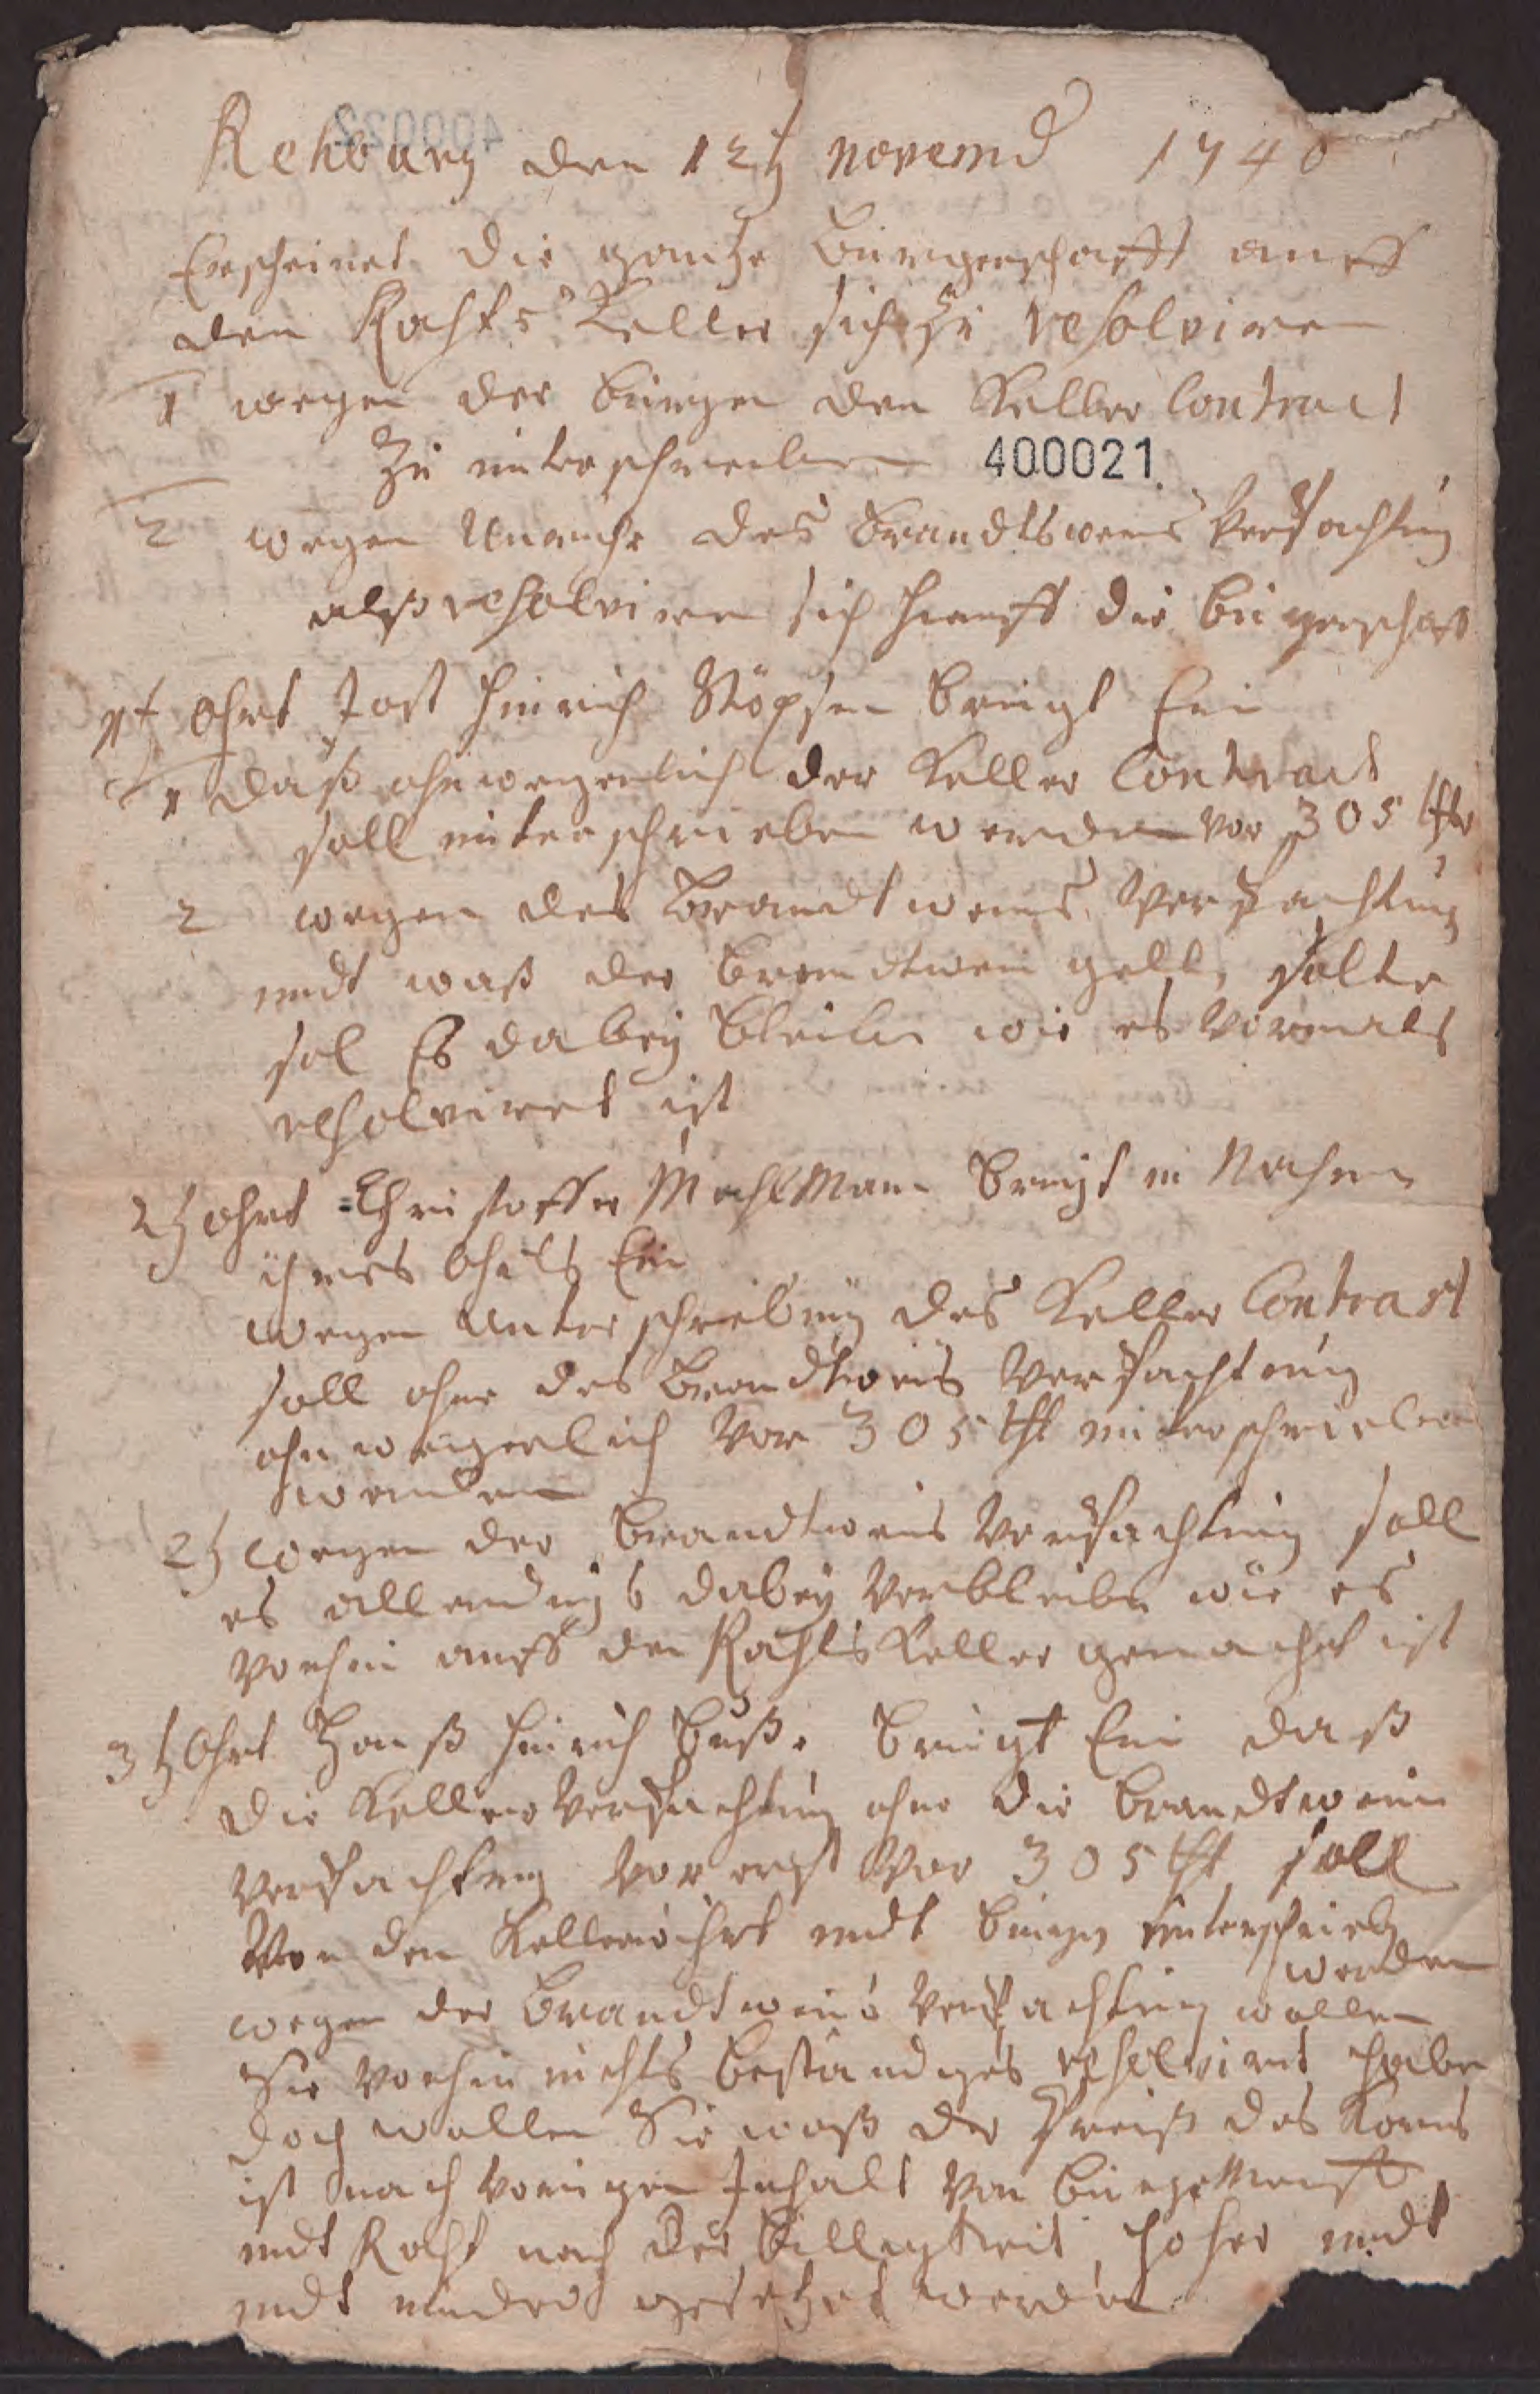 Rehburg den 12t novemb 1740
Erscheinet die gantze Bürgerschafft auff
den Rahts Keller sich zu resolviren
1 wegen der bürgen den Keller Contract
zu unterschreiben 400021
2 wegen des Brandtsweins Verpachtung
alß resolviren sich hierauff die bürgerschafft
1t Ohrt Jost Hinrich Köpsen bringt Ein
1 daß ohnwegerlich der Keller Contract
soll unterschrieben werden vor 305 thlr
2 wegen des Brandtweins Verpachtung
undt waß der brandtwein gelten solte
sol Es dabey bleiben wie es vormals
resolviret ist
2t Ohrt Christoffer Mahlman bringt in Nahmen
ihres Ohrts Ein
wegen Unterschreibung des Keller Contract
soll ohne des Brandtweins Verpachtung
ohnweigerlich vor 305 thl unterschrieben
werden
2t wegen der Brandtweins Verpachtung soll
es allerdings dabey verbleiben wie es
vorhin auff den Rahts Keller gemachet ist
3t Ohrt Hanß Hinrich Bußе bringt Ein daß
die Keller Verpachtung ohne die brandtwein
verpachtung vor erst vor 305 thl soll
Von den Kellerwihrt undt bürgen unterschrieben
werden
wegen der Brandtweins Verpachtung wollen
Sie vorhin nichts beständiges resolviret haben
doch wollen Sie waß der Preiß des Korns
ist nach vorigen Inhalt von bürgemeister
undt Raht nach der billigkeit hoher undt
undt minder gesetzet werden